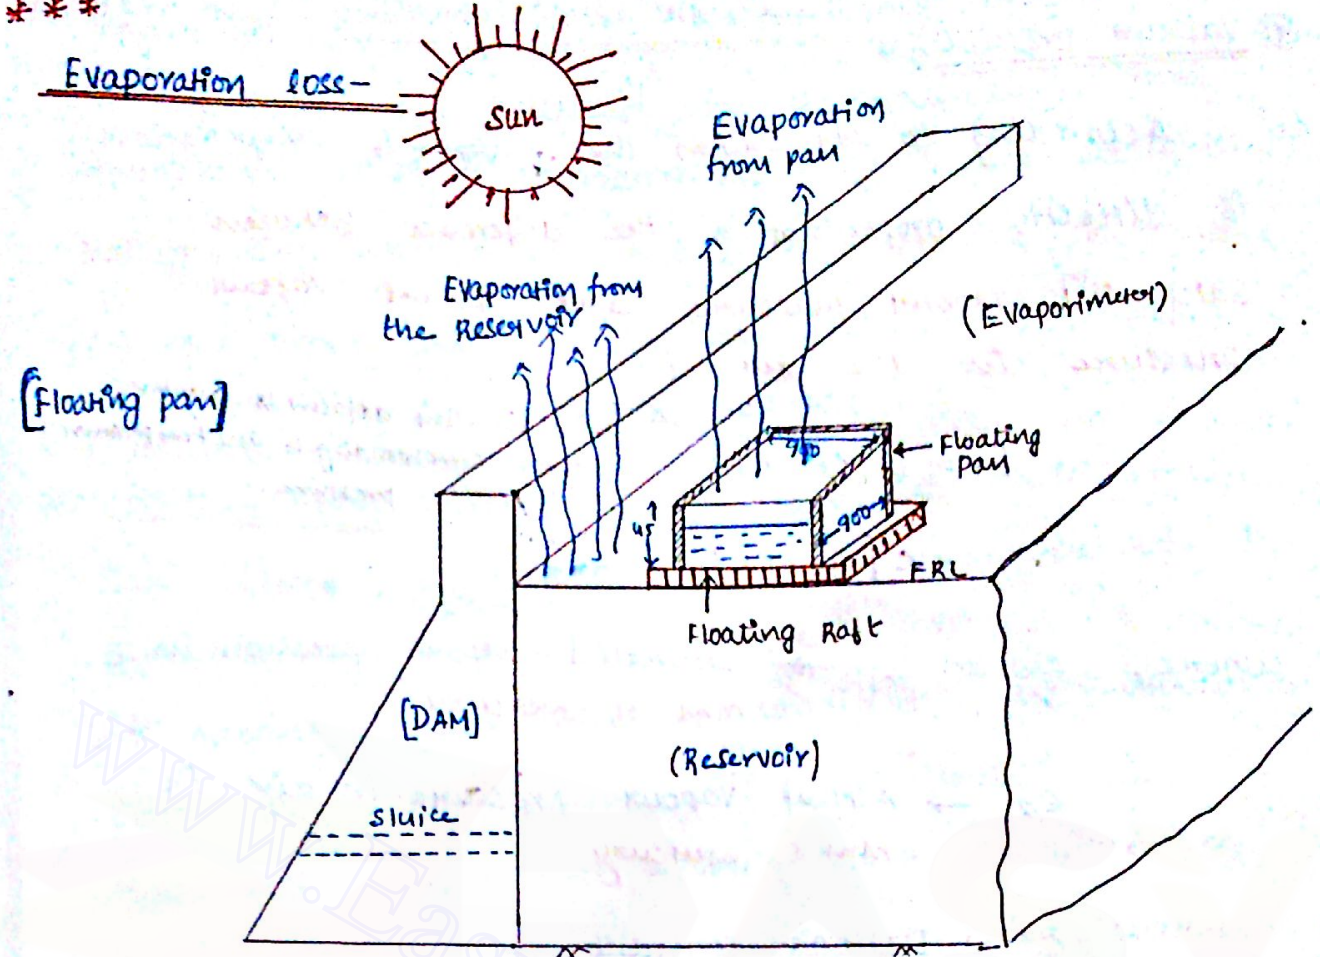 ***
Evaporation loss-
Sun
Evaporation
from pan
Evaporation from
the Reservoir
(Evaporimeter)
[Floating pan]
900
Floating
pan
45
900
FRL
Floating Raft
[DAM]
(Reservoir)
Sluice
www.Ea